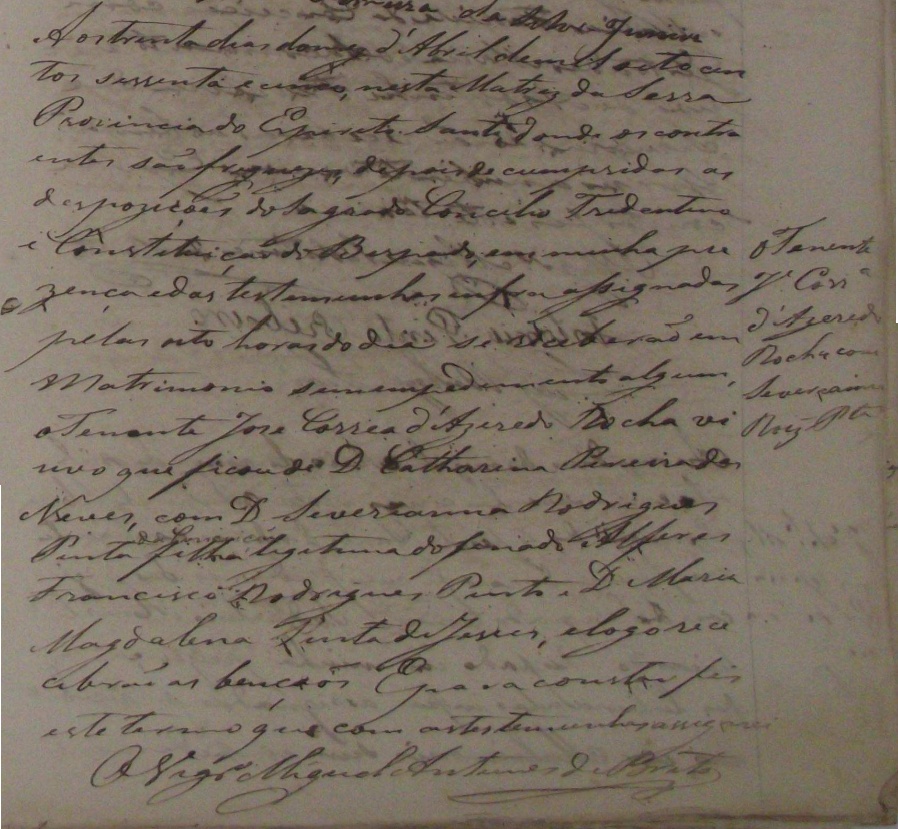 da Silva Junior
Aos trinta dias do mez d'Abril de mil oito cen
tos sessenta e cinco, nesta Matriz da Serra
Provincia do Espirito Santo, donde os contra
entes são freguezes, depois de cumpridas as
despozições do Sagrado Concilio Tredentino
e Constituição do Bispado, em minha pre
zença e das testemunhas infra assignadas
pelas oito horas do dia se receberão em
Matrimonio sem empedimento algum,
o Tenente Jose Correa d'Azeredo Rocha vi
uvo que ficou de D. Catharina Pereira das
Neves, com D. Severianna Rodrigues
Pinta da Conceição filha legitima do finado Alferes
Francisco Rodrigues Pinto e Dª Maria
Magdalena Pinta de Jesus, e logo rece
cebrão as bençãos E para constar fis
este termo que com as testemunhas assignei
O Vigrº Miguel Antunes de Brito
O Tenente
Jê Corrª
d'Azeredo
Rocha com
Severianna
Roiz Pta